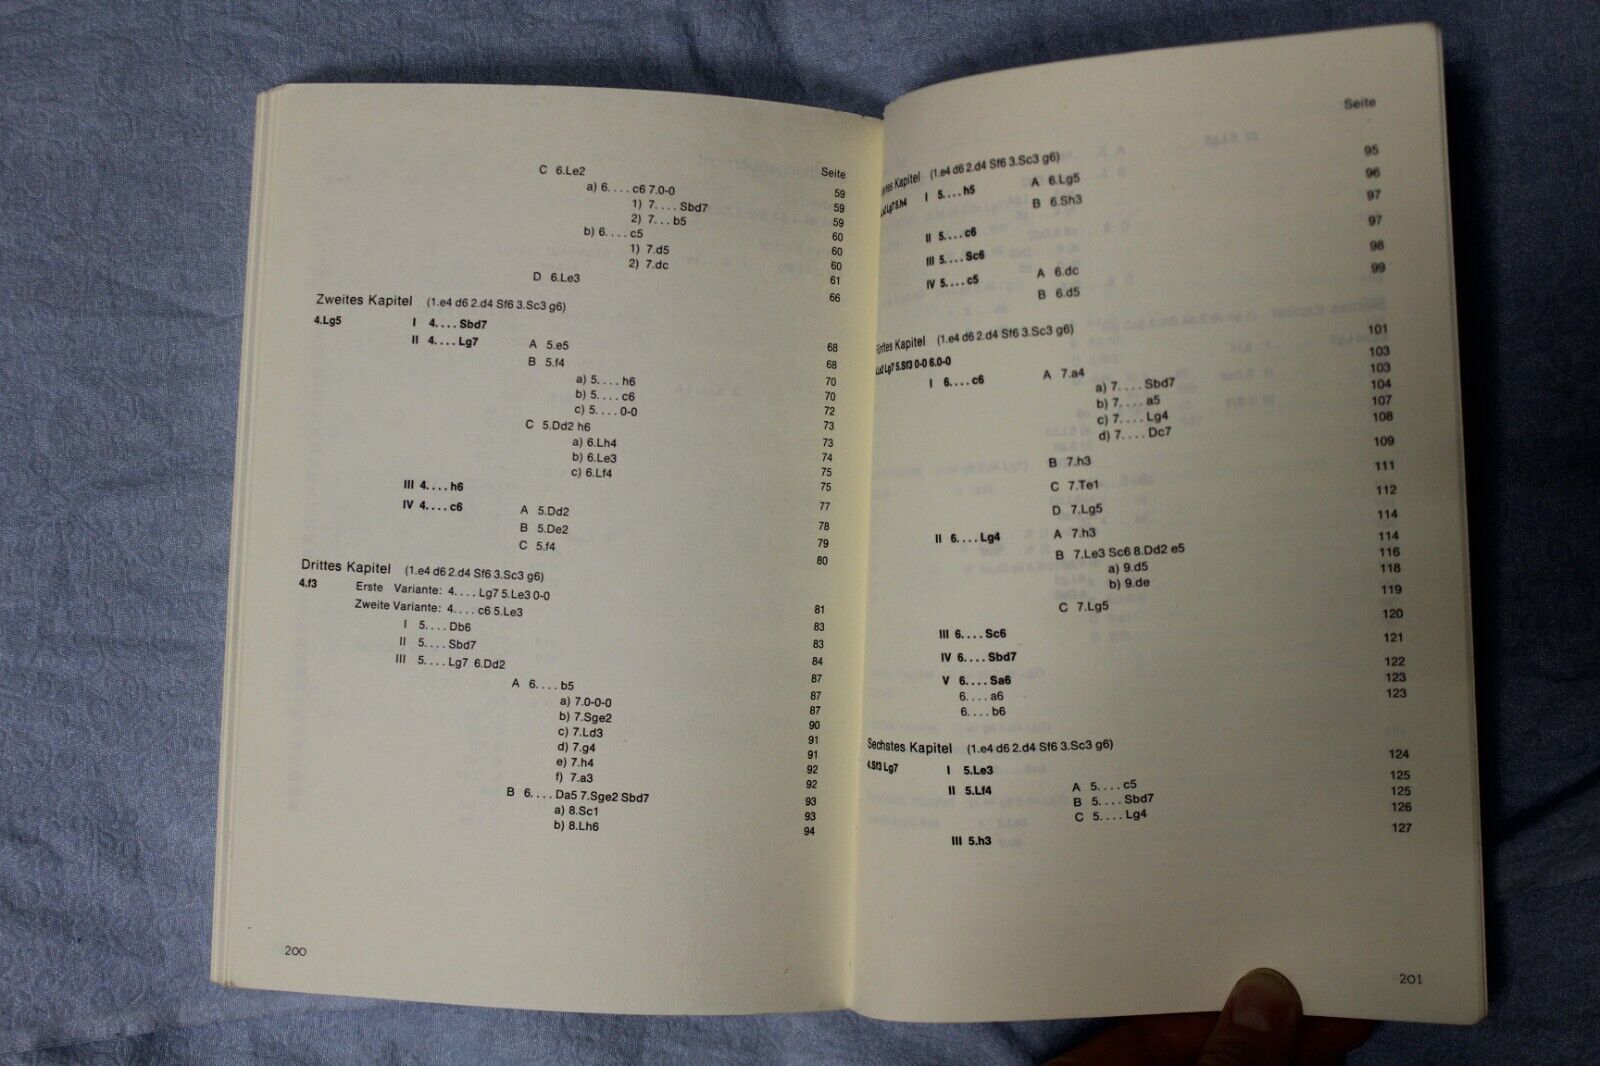 Seite
C 6.Le2 59
a) 6....c6 7.0-0 59
1) 7....Sbd7 59
2) 7...b5 60
b) 6....c5 60
1) 7.d5 60
2) 7.dc 61
D 6.Le3 66
Zweites Kapitel (1.e4 d6 2.d4 Sf6 3.Sc3 g6)
4.Lg5 I 4....Sbd7 68
II 4....Lg7 A 5.e5 68
B 5.f4 70
a) 5....h6 70
b) 5....c6 72
c) 5....0-0 73
C 5.Dd2 h6 73
a) 6.Lh4 74
b) 6.Le3 75
c) 6.Lf4 75
III 4....h6 77
IV 4....c6 A 5.Dd2 78
B 5.De2 79
C 5.f4 80
Drittes Kapitel (1.e4 d6 2.d4 Sf6 3.Sc3 g6)
4.f3 Erste Variante: 4....Lg7 5.Le3 0-0 81
Zweite Variante: 4....c6 5.Le3 83
I 5....Db6 83
II 5....Sbd7 84
III 5....Lg7 6.Dd2 87
A 6....b5 87
a) 7.0-0-0 87
b) 7.Sge2 90
c) 7.Ld3 91
d) 7.g4 91
e) 7.h4 92
f) 7.a3 92
B 6....Da5 7.Sge2 Sbd7 93
a) 8.Sc1 93
b) 8.Lh6 94
200
Seite
Kapitel (1.e4 d6 2.d4 Sf6 3.Sc3 g6)
Lg7 5.h4 I 5....h5 A 6.Lg5 95
B 6.Sh3 96
II 5....c6 97
III 5....Sc6 97
IV 5....c5 A 6.dc 98
B 6.d5 99
Fünftes Kapitel (1.e4 d6 2.d4 Sf6 3.Sc3 g6)
Lg7 5.Sf3 0-0 6.0-0 101
I 6....c6 A 7.a4 103
a) 7....Sbd7 103
b) 7....a5 104
c) 7....Lg4 107
d) 7....Dc7 108
B 7.h3 109
C 7.Te1 111
D 7.Lg5 112
II 6....Lg4 A 7.h3 114
B 7.Le3 Sc6 8.Dd2 e5 114
a) 9.d5 116
b) 9.de 118
C 7.Lg5 119
III 6....Sc6 120
IV 6....Sbd7 121
V 6....Sa6 122
6....a6 123
6....b6 123
Sechstes Kapitel (1.e4 d6 2.d4 Sf6 3.Sc3 g6)
4.Sf3 Lg7 I 5.Le3 124
II 5.Lf4 A 5....c5 125
B 5....Sbd7 125
C 5....Lg4 126
III 5.h3 127
201